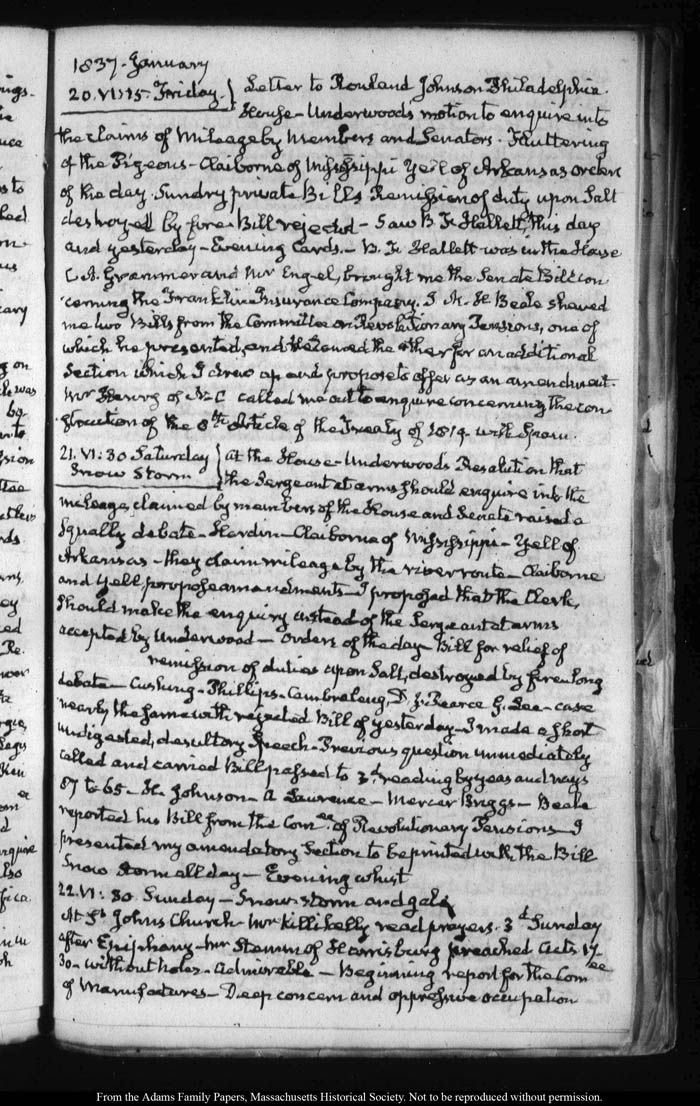 1837. January
20. VI:15. Friday. } Letter to Rowland Johnson Philadelphia.
House - Underwoods motion to enquire into
the claims of Mileage by Members and Senators. Fluttering
of the Pigeons - Claiborne of Mississippi Yell of Arkansas orders
of the day. Sundry private Bills Remission of duty upon Salt
destroyed by fire. Bill rejected - Saw B. F. Hallett, this day
and yesterday - Evening Cards. - B. F. Hallett was in the House
C. A. Grammer and Mr Engel, brought me the Senate Bill con
cerning the Franklin Insurance Company. Beale shewed
me two Bills from the Committee on Revolutionary Pensions, one of
which he presented, and the other for an additional
Section which I drew up and propose to offer as an amendment.
Mr of N-C called me out to enquire concerning the con
struction of the 8th Article of the Treaty of 1819. with Spain.
21. VI:30 Saturday } at the House - Underwoods Resolution that
Snow Storm } the Sergeant at arms should enquire into the
mileage, claimed by members of the House and Senate raised a
Squally debate - Hardin - Claiborne of Mississippi - Yell of
Arkansas - they claim mileage by the river route - Claiborne
and Yell propose amendments - I proposed that the Clerk,
should make the enquiry instead of the Sergeant at arms
accepted by Underwood - Orders of the day - Bill for relief of
remission of duties upon Salt, destroyed by fire - long
debate - Cushing - Phillips - Cambreleng, D. J. Pearce G. Lee - case
nearly the same with rejected Bill of yesterday - I made a short
undigested, desultory Speech - Previous question immediately
called and carried Bill passed to 3.d reading by yeas and nays
87 to 65 - H. Johnson - A Lawrence - Mercer Briggs - Beale
reported his Bill from the Comee of Revolutionary Pensions - I
presented my amendatory Section to be printed with the Bill
Snow storm all day - Evening whist
22. VI:30. Sunday - Snow storm and gale
At St Johns Church - Mr Killikelly read prayers. 3d Sunday
after Epiphany - Mr of Harrisburg preached Acts 17.
30 - without notes - admirable - Beginning report for the Comee
of Manufactures - Deep concern and oppressive occupation
From the Adams Family Papers, Massachusetts Historical Society. Not to be reproduced without permission.